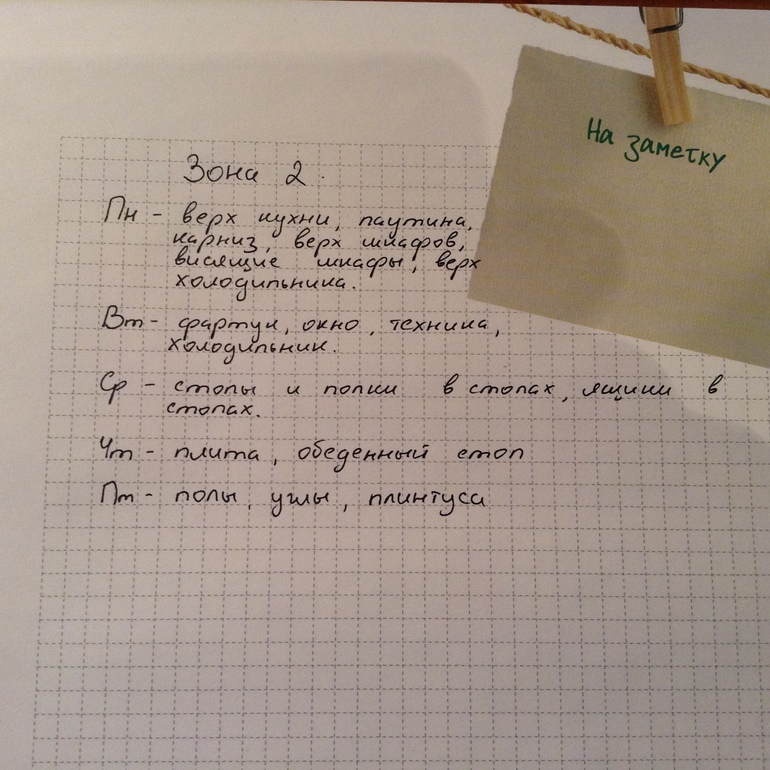 На заметку
Зона 2.
Пн - верх кухни, паутина,
карниз, верх шкафов,
висящие шкафы, верх
холодильника.
Вт - фартук, окно, техника,
холодильник.
Ср - столы и полки в столах, ящики в
столах.
Чт - плита, обеденный стол
Пт - полы, углы, плинтуса